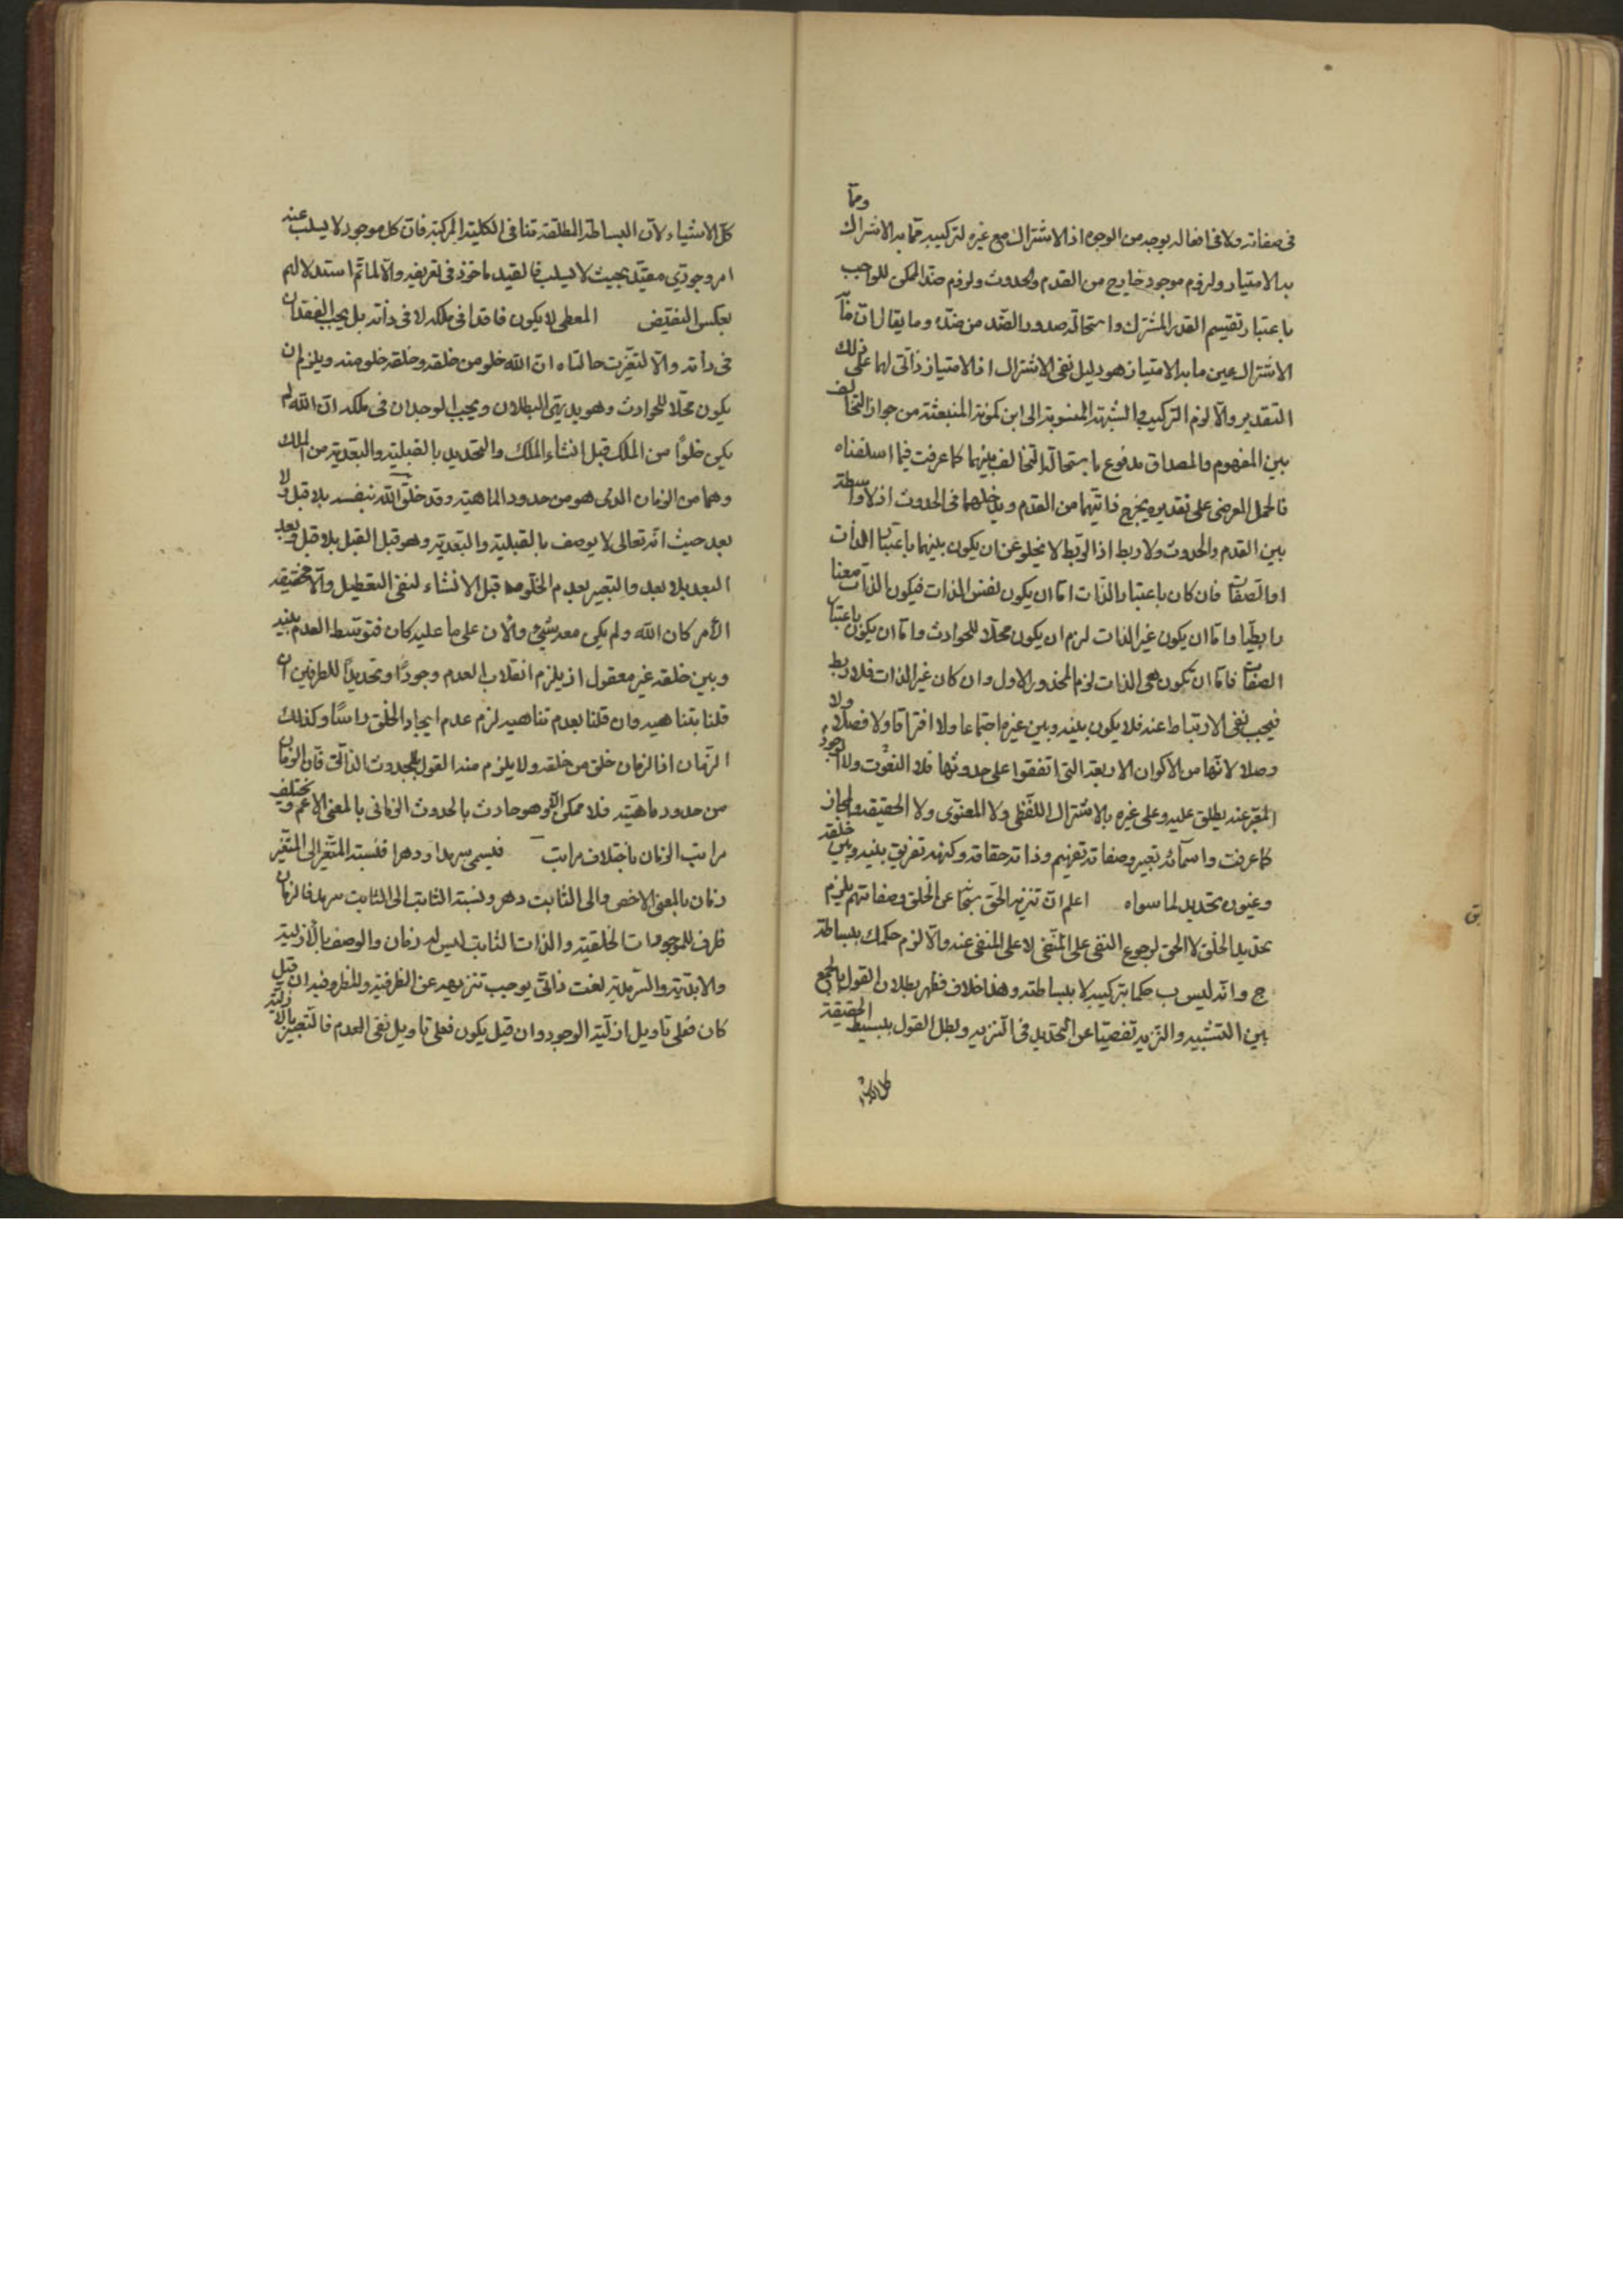 في صفاته ولا في افعاله بوجه من الوجوه اذ الاشتراك مع غيره لتركيبه مما به الاشتراك ومما
به الامتياز ولزوم موجود خارج من القدم والحدوث ولزوم ضد الممكن للواجب
باعتبار تقسيم القدر المشترك واستحالة صدور الضد من ضده وما يقال ان ما به
الاشتراك عين ما به الامتياز هو دليل نفي الاشتراك اذ الامتياز ذاتي لهما على ذلك
التقدير والا لزم التركيب والشبهة المنسوبة الى ابن كمونة المنبعثة من جواز التخالف
بين المفهوم والمصداق مدفوع باستحالة التخالف بينهما كما عرفت فيما اسلفناه
فالحمل العرضي على تقديره يخرج ذاتيهما من القدم ويدخلهما في الحدوث اذ لا واسطة
بين القدم والحدوث ولا ربط اذ الربط لا يخلو عن ان يكون بينهما باعتبار الذات
او الصفات فان كان باعتبار الذات اما ان يكون نفس الذات فيكون الذات معنا
رابطيا واما ان يكون غير الذات لزم ان يكون محلا للحوادث واما ان يكون باعتبار
الصفات فاما ان تكون هي الذات لزم المحذور الاول وان كان غير الذات فلا ربط
فيجب نفي الارتباط عنه فلا يكون بينه وبين غيره اجتماعا ولا افتراقا ولا فصلا ولا
وصلا لانها من الاكوان الاربعة التي اتفقوا على حدوثها فلا النعوت ولا الوجود
المعبر عنه يطلق عليه وعلى غيره بالاشتراك اللفظي ولا المعنوي ولا الحقيقة والمجاز
كما عرفت واسمائه تعبير وصفاته تفهيم وذاته حقاقة وكنهه تفريق بينه وبين خلقه
وغيوره تحديد لما سواه اعلم ان تنزيه الحق سبحانه عن الخلق وصفاتهم يلزم
تحديد الخلق لا الحق لرجوع النفي على المنفي لا على المنفي عنه والا لزم حكمك ببساطة
ج وانه ليس ب حكما بتركيبه لا ببساطته وهذا خلاف فظهر بطلان القول بالجمع
بين التشبيه والتنزيه تفصيا عن التحديد في التنزيه وبطل القول ببسيط الحقيقة
كل الاشياء
كل الاشياء لان البساطة المطلقة تنافي الكلية المركبة فان كل موجود لا يسلب عنه
امر وجودي مقيد بحيث لا يسلب فالقيد ماخوذ في تعريفه والا لما تم استدلالهم
بعكس النقيض المعطي لا يكون فاقدا في ملكه لا في ذاته بل يجب الفقدان
في ذاته والا لتغيرت حالتاه ان الله خلو من خلقه وخلقه خلو منه ويلزم ان
يكون محلا للحوادث وهو بديهي البطلان ويجب الوجدان في ملكه ان الله لم
يكن خلوا من الملك قبل انشاء الملك والتحديد بالقبلية والبعدية من الملك
وهما من الزمان الذي هو من حدود الماهية وقد خلق الله بنفسه بلا قبل ولا
بعد حيث انه تعالى لا يوصف بالقبلية والبعدية وهو قبل القبل بلا قبل وبعد
البعد بلا بعد والتعبير بعدم المخلوق قبل الانشاء لنفي التعطيل والا فحقيقة
الامر كان الله ولم يكن معه شيء والان على ما عليه كان فتوسط العدم بينه
وبين خلقه غير معقول اذ يلزم انقلاب العدم وجودا وتحديدا للطرفين ان
قلنا بتناهيه وان قلنا بعدم تناهيه لزم عدم ايجاد الخلق راسا وكذلك
الزمان اذ الزمان خلق من خلقه ولا يلزم منه القول بالحدوث الذاتي فان الزمان
من حدود ماهيته فلا ممكن الا وهو حادث بالحدوث الزماني بالمعنى الاعم ويختلف
مراتب الزمان باختلاف مراتب فيسمى سرمدا ودهرا فنسبة المتغير الى المتغير
زمان بالمعنى الاخص والى الثابت دهر ونسبة الثابت الى الثابت سرمد فالزمان
ظرف للموجودات الخلقية والذات الثابت ليس له زمان والوصف بالازلية
والابدية والسرمدية لغت ذاتي يوجب تنزيهه عن الظرفية والمظروفية ان قيل
كان فعلى تاويل ازلية الوجود وان قيل يكون فعلى تاويل نفي العدم فالتعبير بالازلية